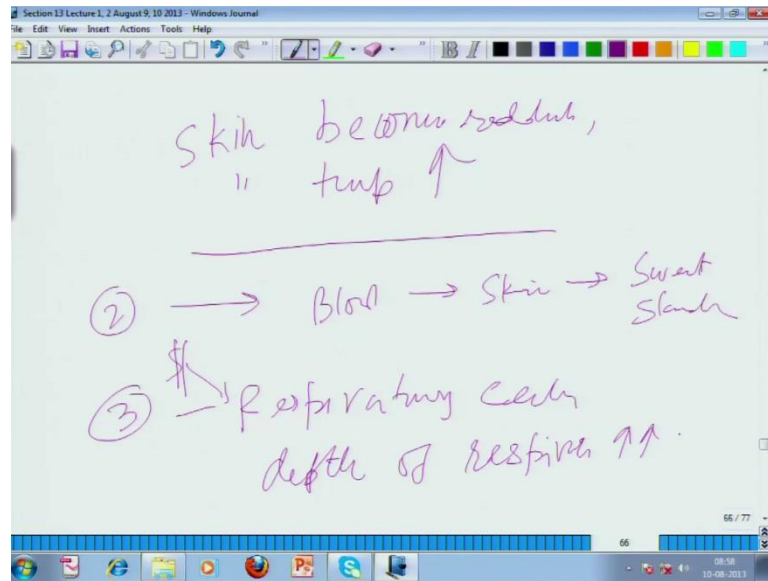 Section 13 Lecture 1, 2 August 9, 10 2013 - Windows Journal
File Edit View Insert Actions Tools Help
Skin becomes reddish,
" temp ↑
② → Blood → Skin → Sweat
Glands
③ Respiratory
depth of ↑↑.
66 / 77
66
08:58
10-08-2013